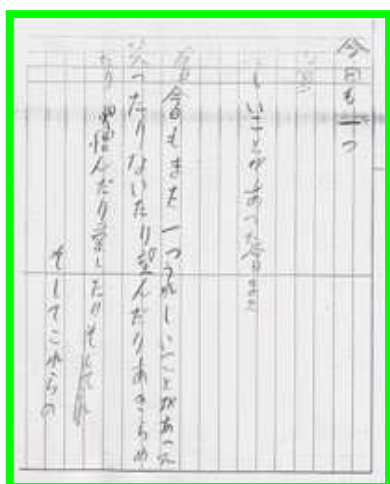 今日も一つ
しいことがあった今日もまた
今日もまた一つうれしいことがあった
笑ったりないたり望んだりあきらめ
たり憎んだり愛したりそして
そしてこれらの